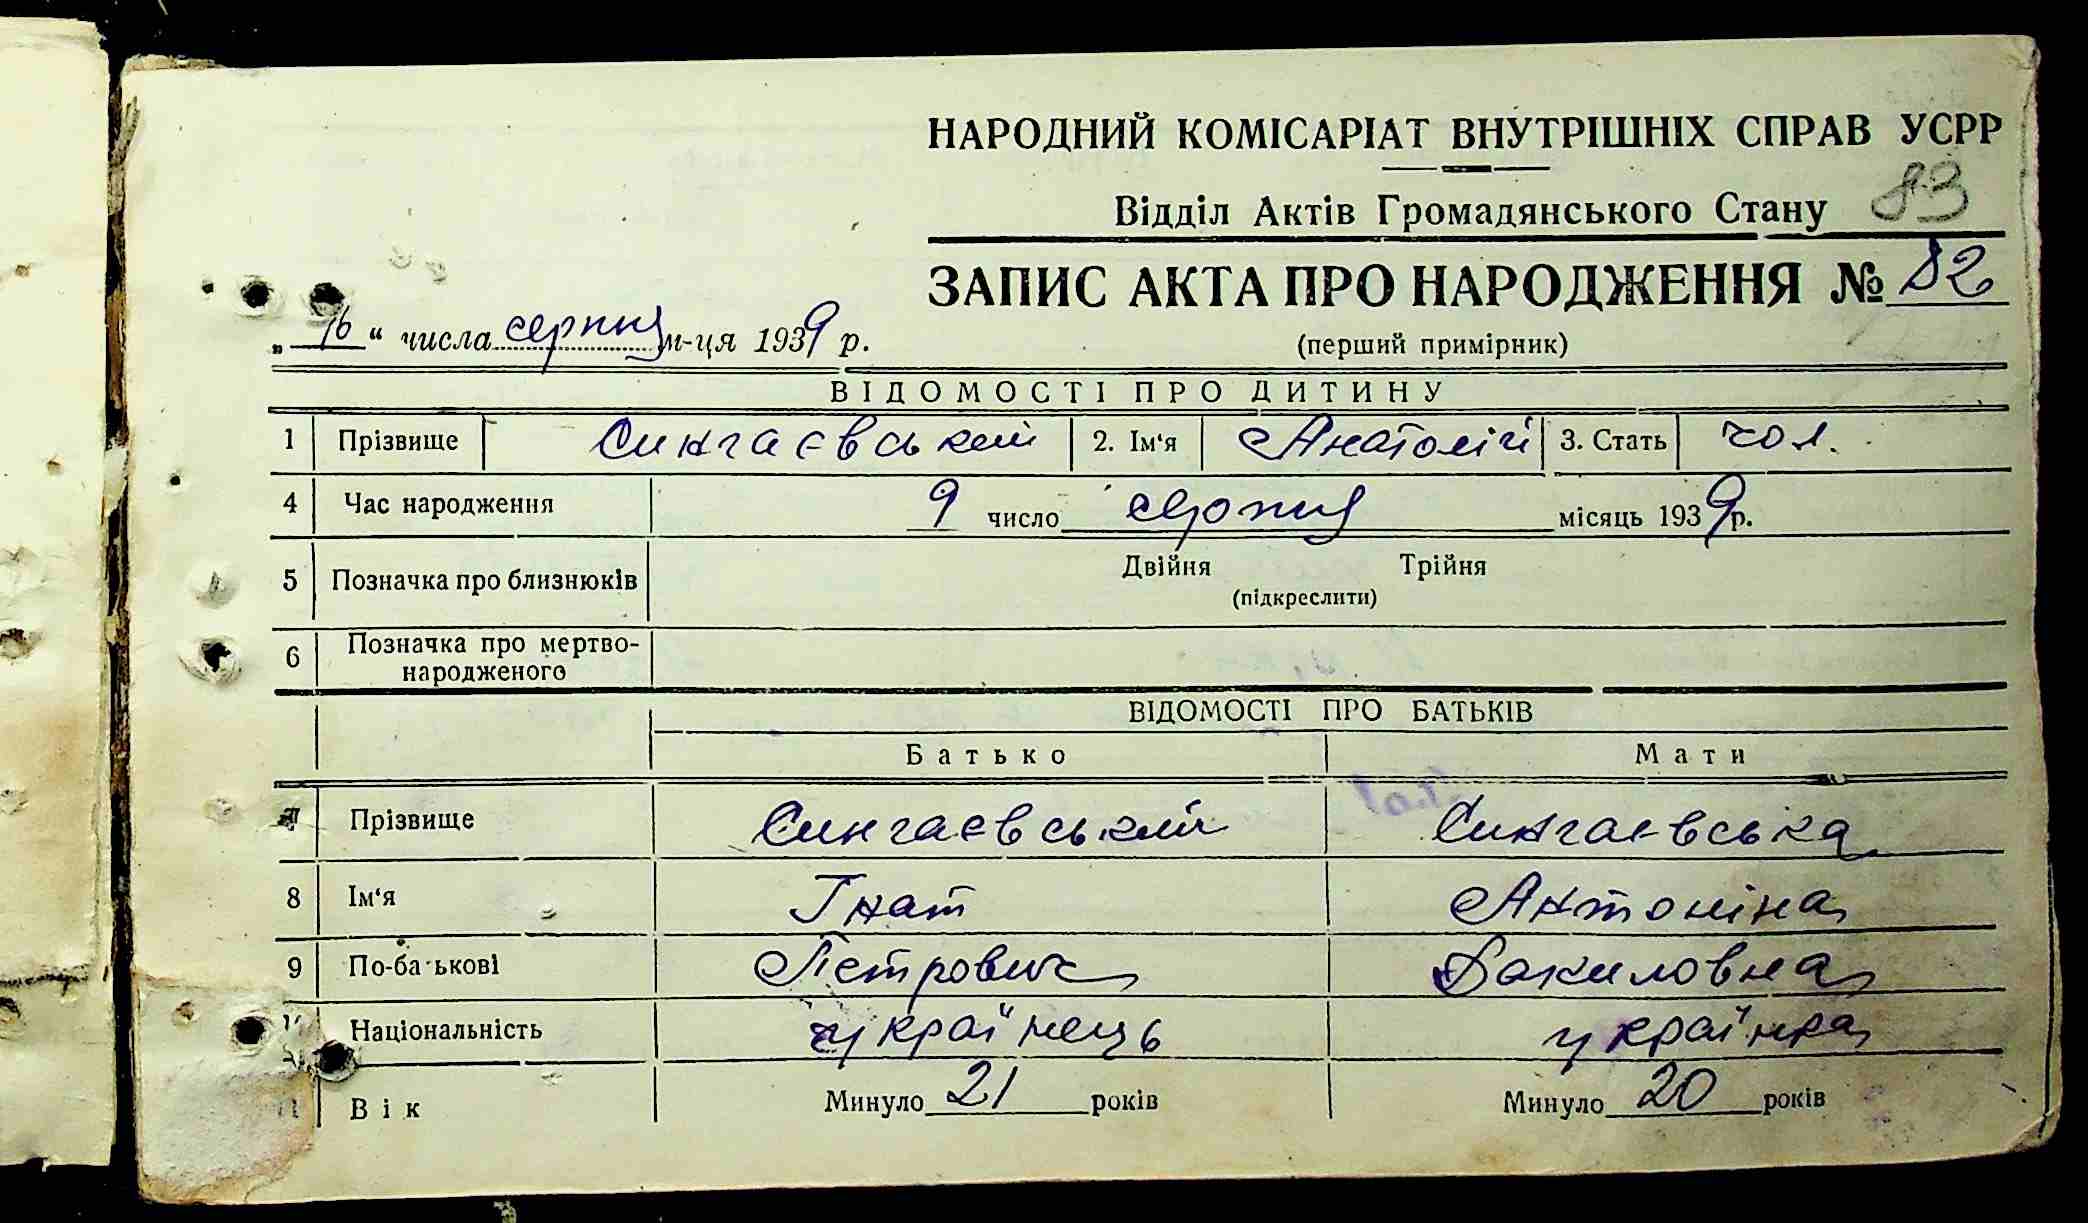 НАРОДНИЙ КОМІСАРІАТ ВНУТРІШНІХ СПРАВ УСРР
Відділ Актів Громадянського Стану 83
ЗАПИС АКТА ПРО НАРОДЖЕННЯ № 82
„16“ числа серпня м-ця 1939 р. (перший примірник)
ВІДОМОСТІ ПРО ДИТИНУ
1 Прізвище Сингаєвський 2. Ім‘я Анатолій 3. Стать чол.
4 Час народження 9 число серпня місяць 1939 р.
5 Позначка про близнюків Двійня Трійня
(підкреслити)
6 Позначка про мертво-
народженого
ВІДОМОСТІ ПРО БАТЬКІВ
Батько Мати
7 Прізвище Сингаєвський Сингаєвська
8 Ім‘я Гнат Антоніна
9 По-батькові Петрович Даниловна
Національність українець українка
11 Вік Минуло 21 років Минуло 20 років